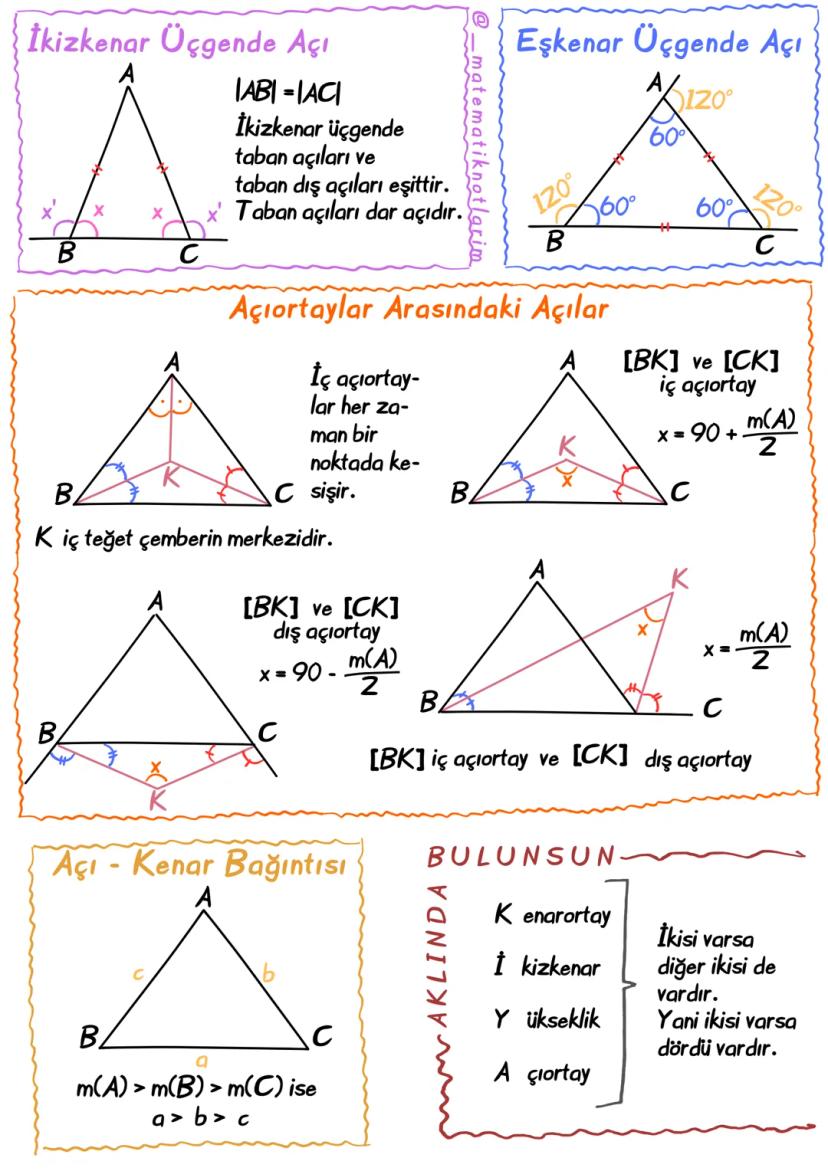 İkizkenar Üçgende Açı
A
|AB| = |AC|
İkizkenar üçgende
taban açıları ve
taban dış açıları eşittir.
Taban açıları dar açıdır.
x' x x x'
B C
@_matematiknotlarim
Eşkenar Üçgende Açı
A
120°
60°
120° 60° 60° 120°
B C
Açıortaylar Arasındaki Açılar
A
K
B C
İç açıortay-
lar her za-
man bir
noktada ke-
sişir.
K iç teğet çemberin merkezidir.
A
K
x
B C
[BK] ve [CK]
iç açıortay
x = 90 + m(A)
2
A
B C
x
K
[BK] ve [CK]
dış açıortay
x = 90 - m(A)
2
A
K
x
B C
x = m(A)
2
[BK] iç açıortay ve [CK] dış açıortay
Açı - Kenar Bağıntısı
A
c b
B C
a
m(A) > m(B) > m(C) ise
a > b > c
AKLINDA
BULUNSUN
K enarortay
İ kizkenar
Y ükseklik
A çıortay
İkisi varsa
diğer ikisi de
vardır.
Yani ikisi varsa
dördü vardır.